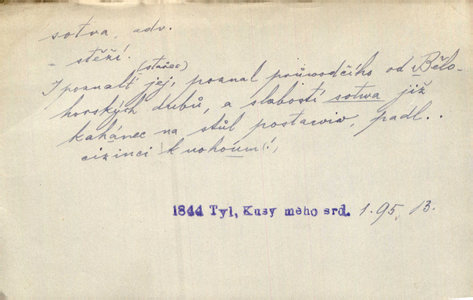 sotva, adv.
- stěží.
(stařec)
I poznalť jej, poznal průwodčího od Bělo-
horských dubů, a slabostí sotwa již
kahánec na stůl postawiv, padl..
cizinci k nohoum!,
1844 Tyl, Kusy mého srd. 1.95, 13.